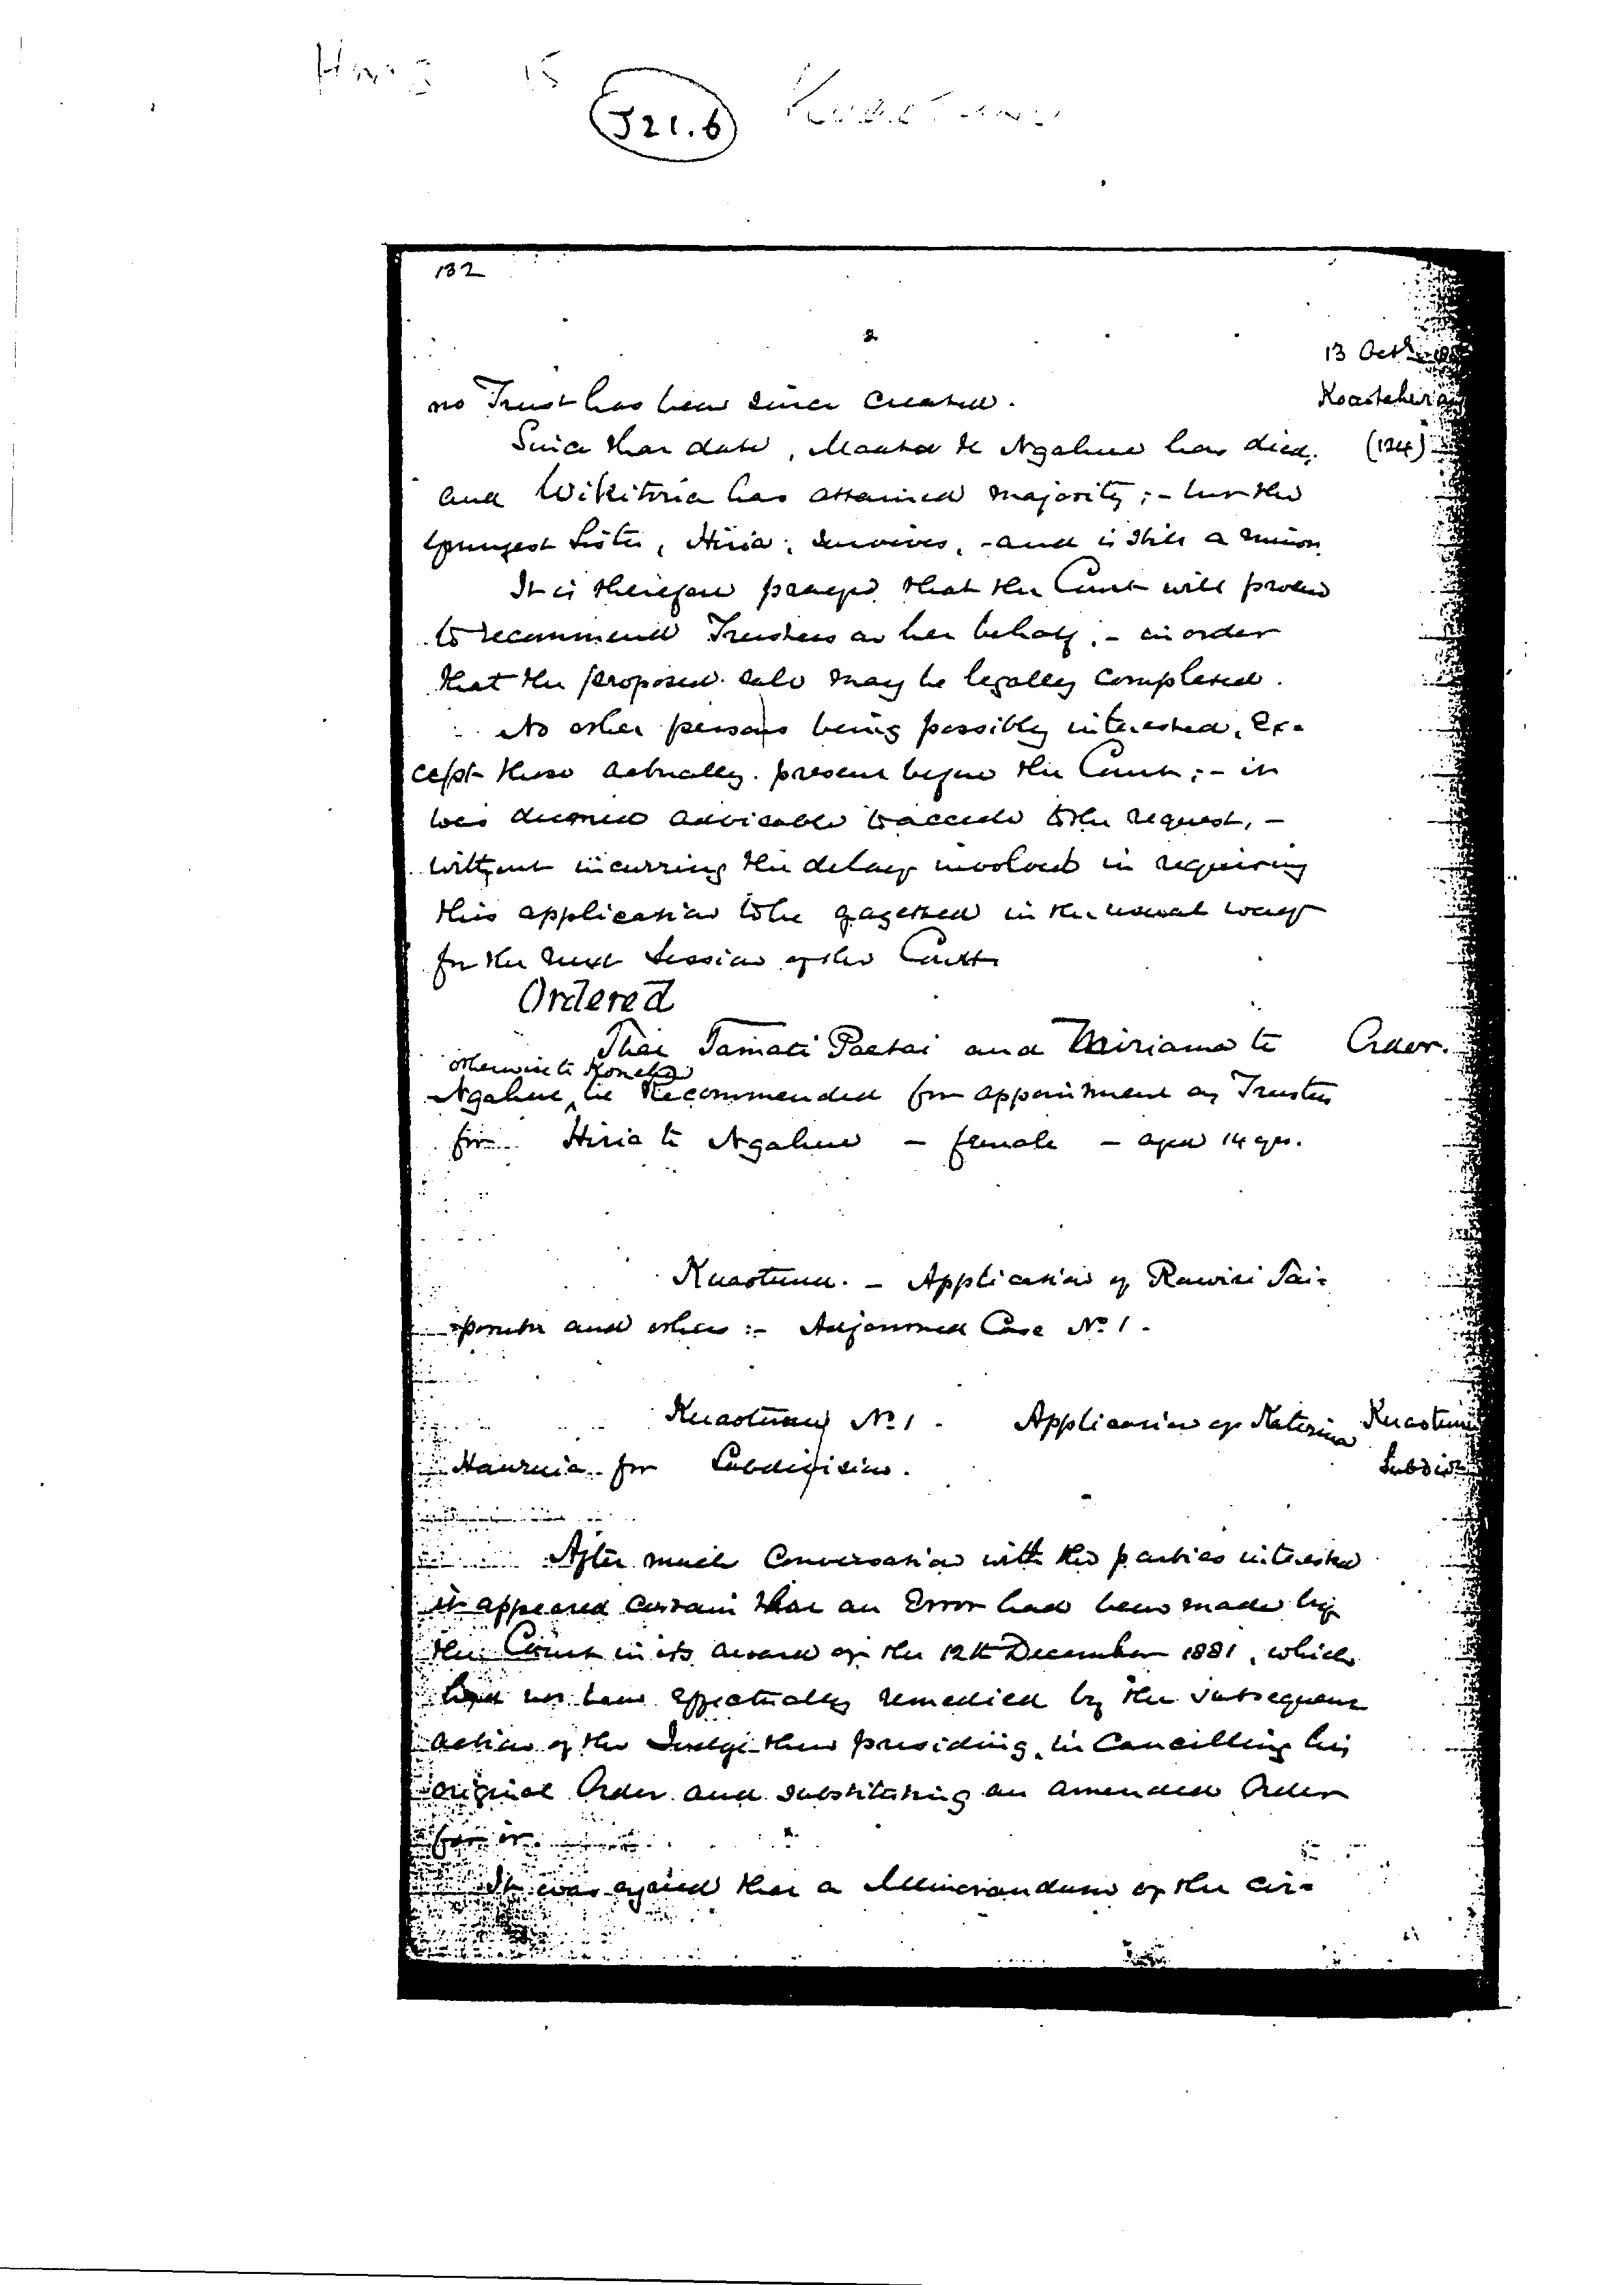 J21.6
132
13 Oct
no Trust has been since created.
Since that date, Maata te Ngahue has died, (124)
and Wikitoria has attained majority; - but the
youngest Sister, Hiria, survives, - and is still a minor.
It is therefore prayed that the Court will proceed
to recommend Trustees on her behalf, - in order
that the proposed sale may be legally completed.
No other persons being possibly interested, Ex-
cept those actually present before the Court; - it
was deemed advisable to accede to the request, -
without incurring the delay involved in requiring
this application to be gazetted in the usual way
for the next Session of the Court.
Ordered
That Tamati Paetai and Miriama te Order.
otherwise te
Ngahue be Recommended for appointment as Trustees
for Hiria te Ngahue - female - aged 14 yrs.
Kuaotunu. - Application of Rawiri Tai-
and others :- Adjourned Case No. 1.
Kuaotunu No. 1. Application of Katerina Kuaotunu
Hauruia for Subdivision. Subdivn
After much Conversation with the parties interested
it appeared certain that an Error had been made by
the Court in its award of the 12th December 1881, which
had not been effectually remedied by the subsequent
action of the Judge then presiding, in Cancelling his
original Order and substituting an amended Order
for it.
It was agreed that a Memorandum of the cir-